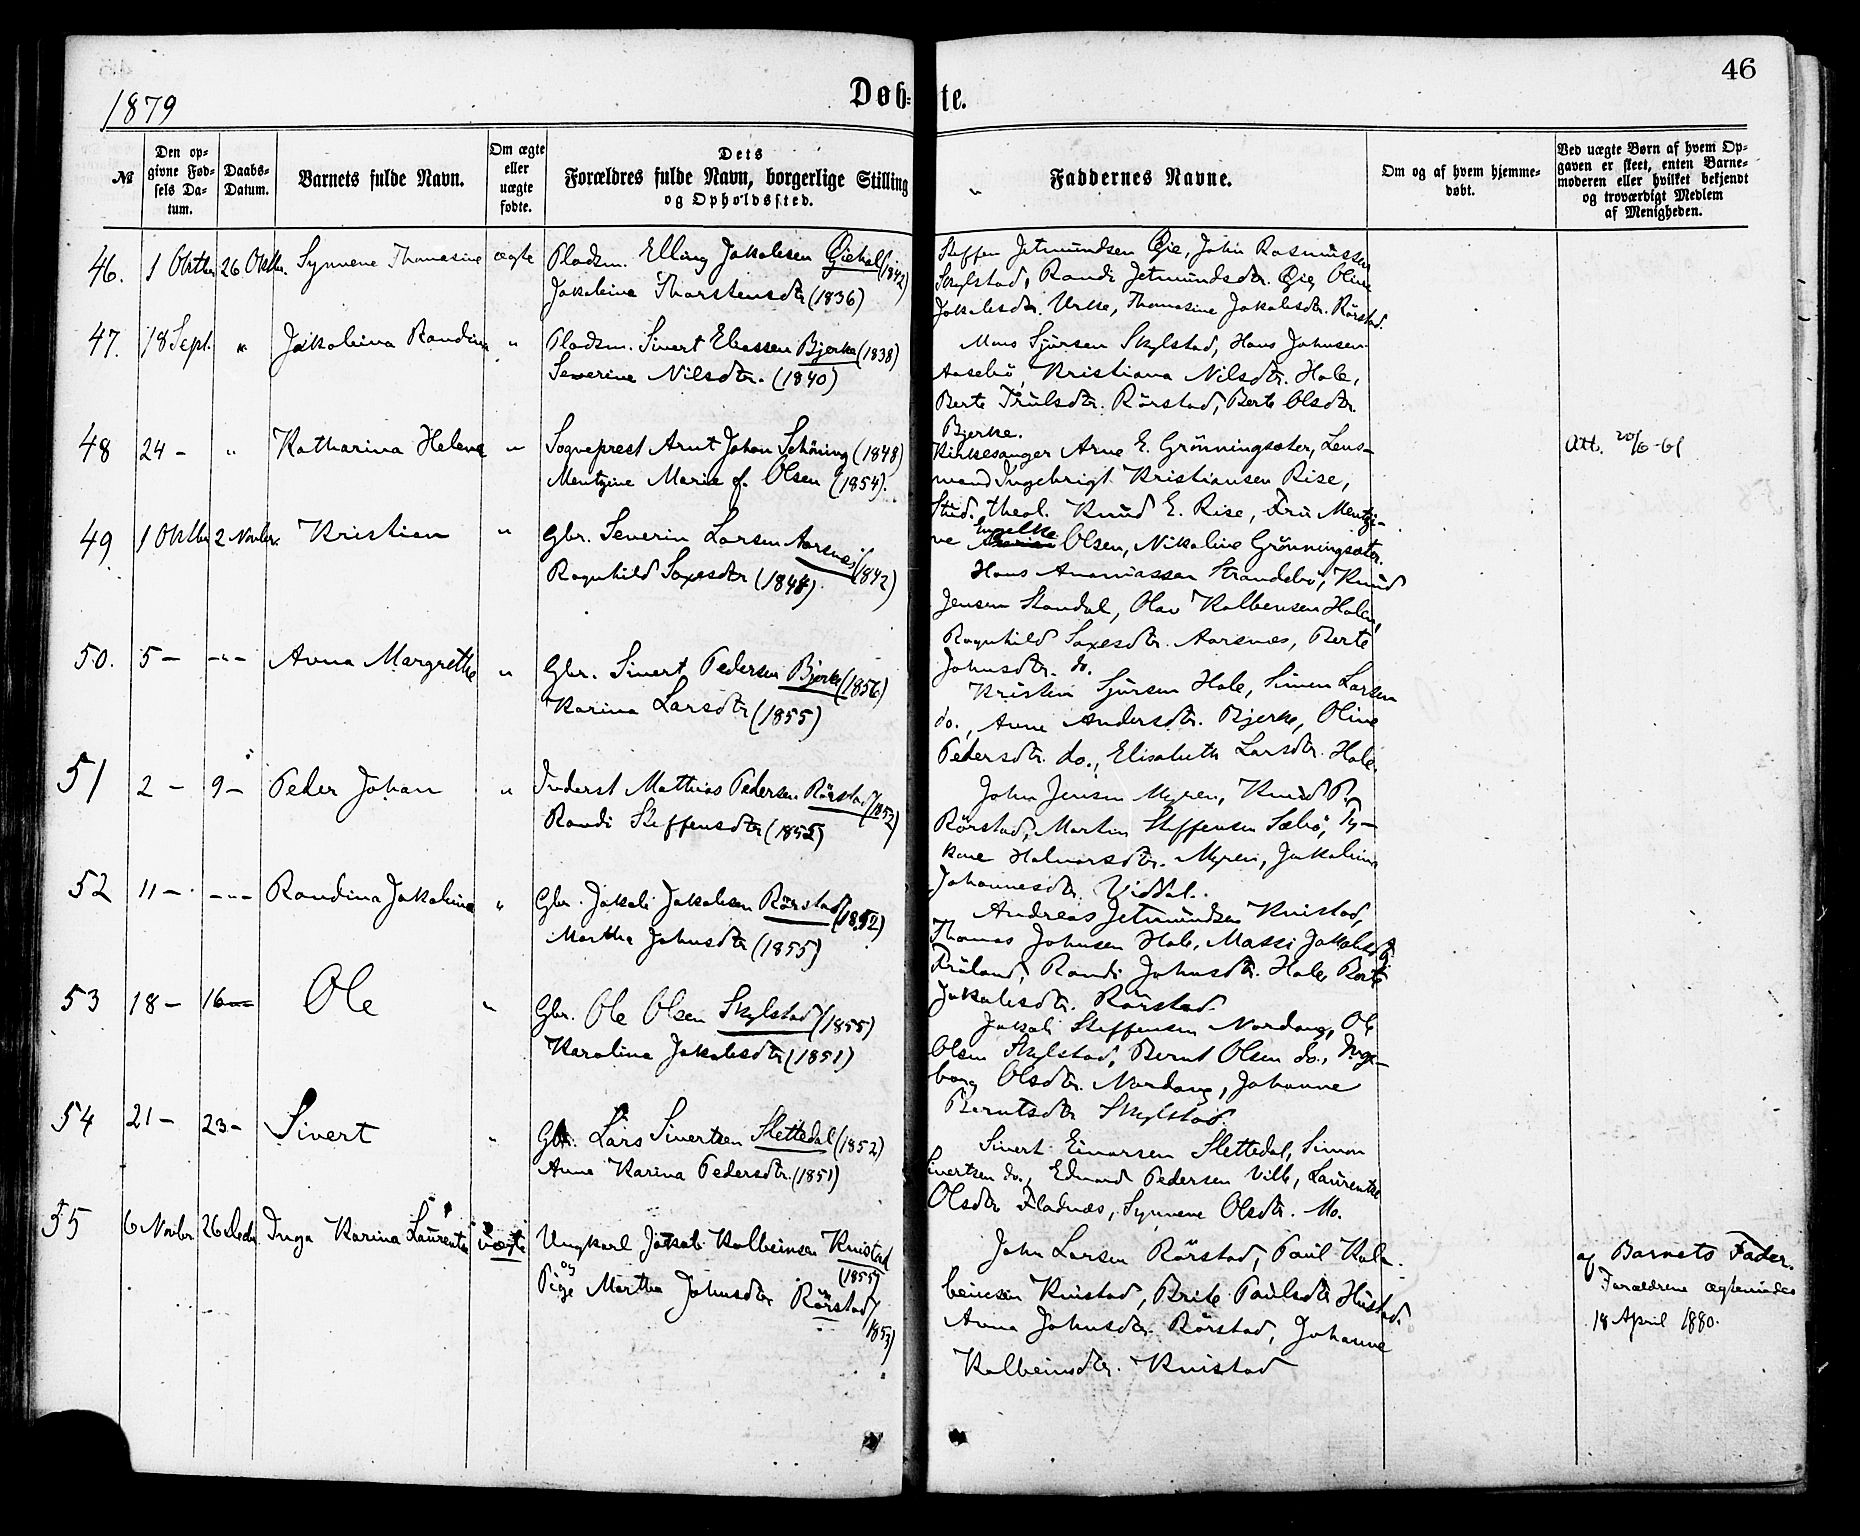 46
1879
Døbte.
№
Den opgivne Fødsels Datum.
Daabs-Datum.
Barnets fulde Navn.
Om ægte eller uægte fødte.
Dets Forældres fulde Navn, borgerlige Stilling og Opholdssted.
Faddernes Navne.
Om og af hvem hjemmedøbt.
Ved uægte Børn af hvem Opgaven er skeet, enten Barnemoderen eller hvilket bekjendt og troværdigt Medlem af Menigheden.
46. 1 Oktbr 26 Oktbr. Synnene Thomasine ægte
Pladsm. Elling Jakobsen Øiehal (1842)
Jakobine Thorstensdtr (1836)
Steffen Jetmundsen Øie, John Rasmussen
Skylstad, Randi Jetmundsdtr. Øie, Oline
Jakobsdtr. Urke, Thomasine Jakobsdtr. Rörstad.
47. 18 Sept. " Jakobina Randina "
Pladsm. Sivert Eliassen Bjerke (1838)
Severine Nilsdtr. (1840)
Mons Sjursen Skylstad, Hans Johnsen
Aasebö, Kristiana Nilsdtr. Hole,
Berte Trulsdtr. Rörstad, Berte Olsdtr.
Bjerke.
48 24 - " Katharina Helene "
Sogneprest Arnt Johan Schöning (1848)
Mentzine Marie f. Olsen (1854).
Kirkesanger Arne E. Grönningsæter, Lens-
mand Ingebrigt Kristiansen Rise,
Stud. theol. Knud E. Rise, Fru Mentzi-
ne Engelke Olsen, Nikoline Grönningsæter.
Att. 20/6-61
49 1 Oktbr 2 Novbr. Kristian "
Gbr. Severin Larsen Aarsnes (1842)
Ragnhild Saxesdtr (1844)
Hans Ananiassen Strandebö, Knud
Jensen Standal, Olav Kolbensen Hole,
Ragnhild Saxesdtr. Aarsnæs, Berte
Johnsdtr. do.
50. 5 - -"- Anna Margrethe "
Gbr. Sivert Pedersen Bjerke (1856)
Karina Larsdtr (1855)
Kristen Sjursen Hole, Simen Larsen
do., Anne Andersdtr. Bjerke, Oline
Pedersdtr. do., Elisabeth Larsdtr. Hole.
51 2 - 9 - Peder Johan "
Inderst Mathias Pedersen Rörstad (1852)
Randi Steffensdtr (1855)
John Jensen Myren, Knud P.
Rörstad, Martin Steffensen Sæbö, Ty-
kone Halvorsdtr. Myren, Jakobine
Johannesdtr. Viddal.
52 11 - -"- Randina Jakobine "
Gbr. Jakob Jakobsen Rörstad (1852)
Martha Johnsdtr (1855)
Andreas Jetmundsen Knistad,
Thomas Johnsen Hole, Massi Jakobsdtr
Fröland, Randi Johnsdtr. Hole, Berte
Jakobsdtr. Rörstad.
53 18 - 16 - Ole "
Gbr. Ole Olsen Skylstad (1855)
Karolina Jakobsdtr (1851)
Jakob Steffensen Nordang, Ole
Olsen Skylstad, Bernt Olsen do., Inge-
borg Olsdtr. Nordang, Johanne
Berntsdtr Skylstad.
54 21 - 23 - Sivert "
Gbr. Lars Sivertsen Slettedal (1852)
Anne Karina Pedersdtr. (1851)
Sivert Einarsen Slettedal, Simon
Sivertsen do., Edmund Pedersen Vilb, Laurentse
Olsdtr Fladnæs, Synnene Olsdtr. Mo.
55 6 Novbr 26 Decbr Inga Karina Laurentse uægte
Ungkarl Jakob Kolbeinsen Knistad (1855)
og
Pige Martha Johnsdtr Rörstad (1853)
John Larsen Rörstad, Paul Kol-
beinsen Knistad, Brite Paulsdtr Hustad.
Anna Johnsdtr. Rörstad, Johanne
Kolbeinsdtr. Knistad
af Barnets Fader.
Forældrene ægteviedes
18 April 1880.